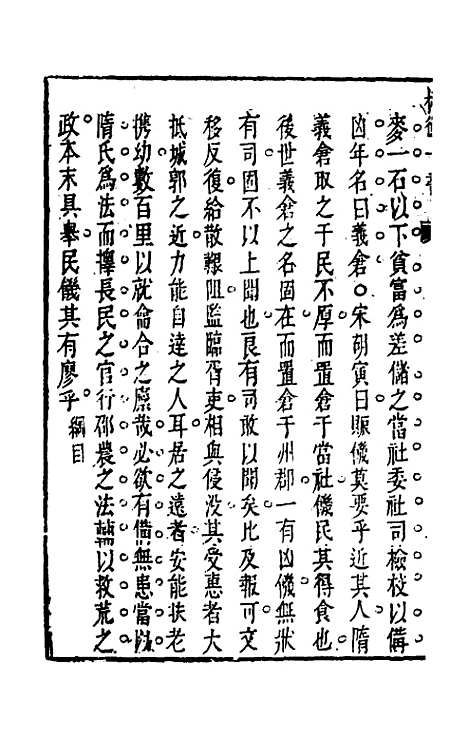 麥一石以下貧富爲差儲之當社委社司檢校以備
凶年名曰義倉○宋胡寅曰賑饑莫要乎近其人隋
義倉取之于民不厚而置倉于當社饑民其得食也
後世義倉之名固在而置倉于州郡一有凶饑無狀
有司固不以上聞也良有司敢以聞矣比及報可文
移反復給散艱阻監臨胥吏相與侵没其受惠者大
抵城郭之近力能自達之人耳居之遠者安能扶老
携幼數百里以就龠合之廪哉必欲有備無患當以
隋氏爲法而擇長民之官行郡農之法輔以救荒之
政本末具舉民饑其有廖乎 綱目